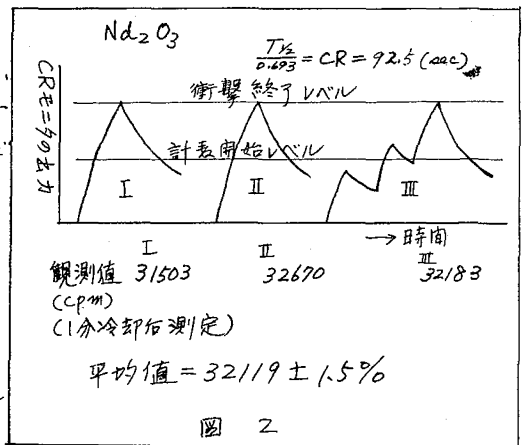 Nd₂O₃
T½/0.693 = CR = 92.5 (sec)
衝撃終了レベル
計表開始レベル
CRモニタの出力
I
II
III
→ 時間
I II III
観測値 31503 32670 32183
(cpm)
(1分冷却后測定)
平均値 = 32119 ± 1.5%
図 2